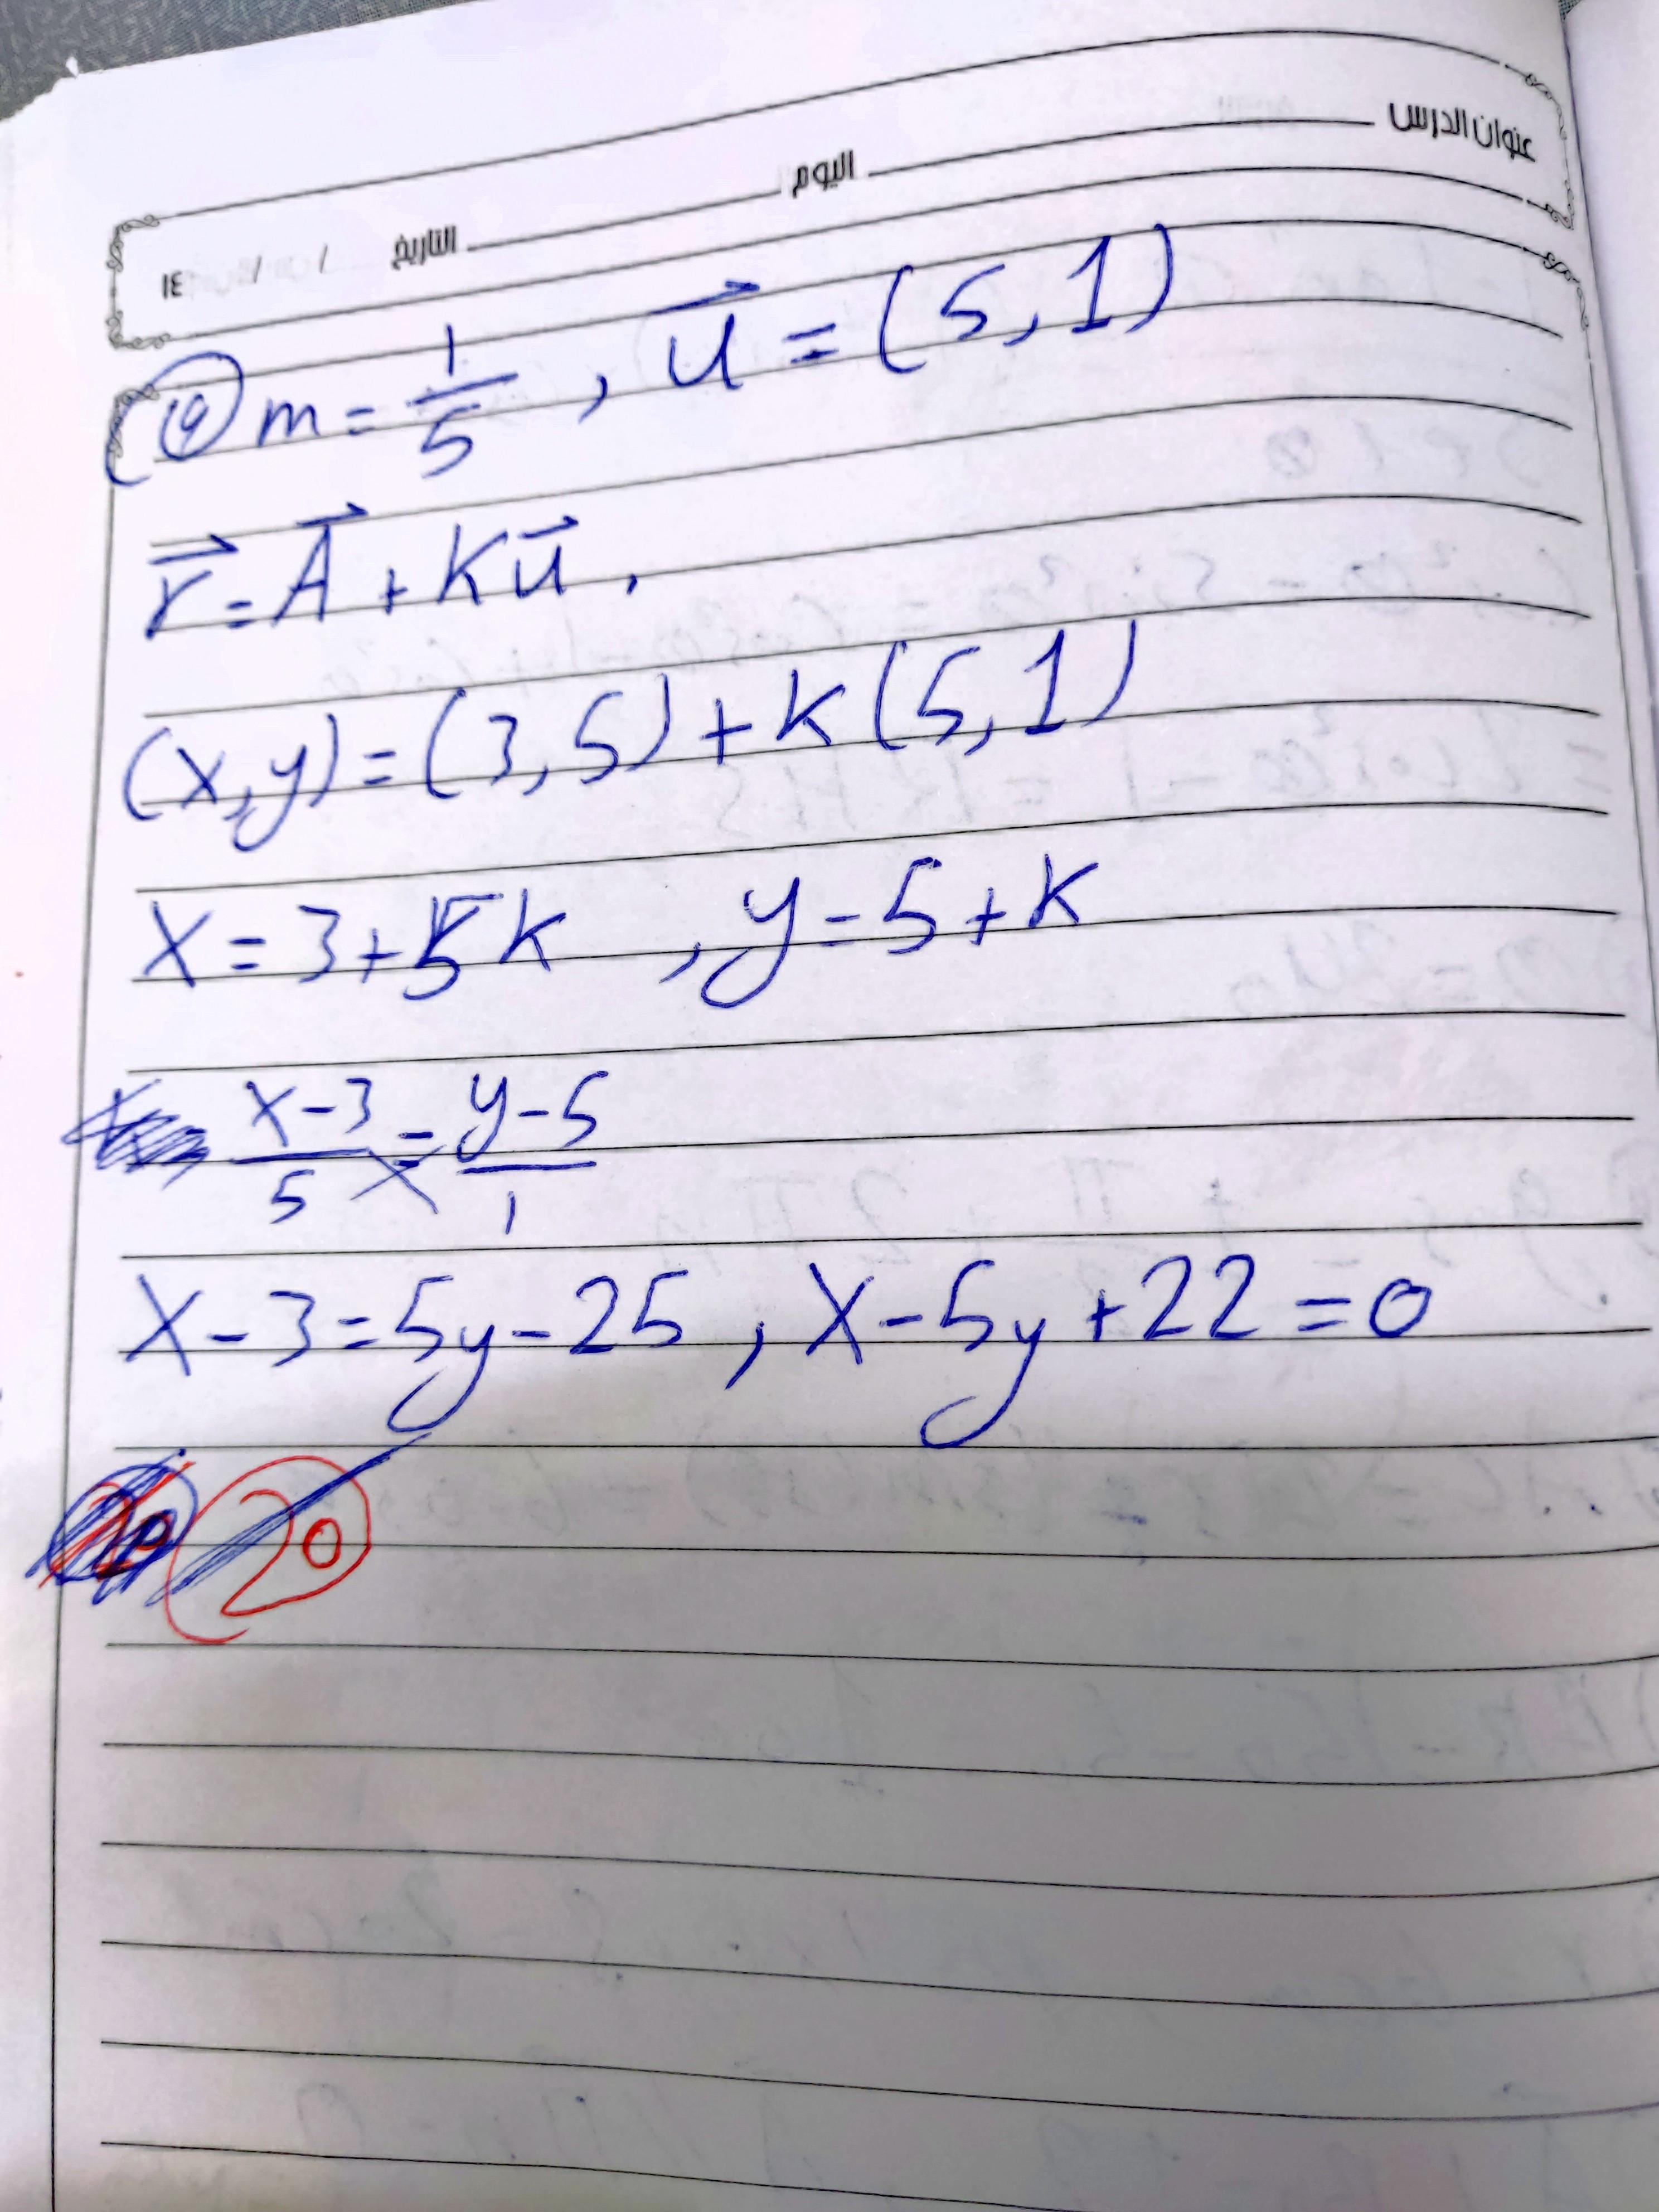 عنوان الدرس اليوم التاريخ / / ١٤
(19) m = 1/5 , u⃗ = (5, 1)
r⃗ = A⃗ + K u⃗ .
(x, y) = (3, 5) + k (5, 1)
X = 3 + 5 k , y = 5 + k
x-3/5 = y-5/1
X - 3 = 5y - 25 , X - 5y + 22 = 0
20